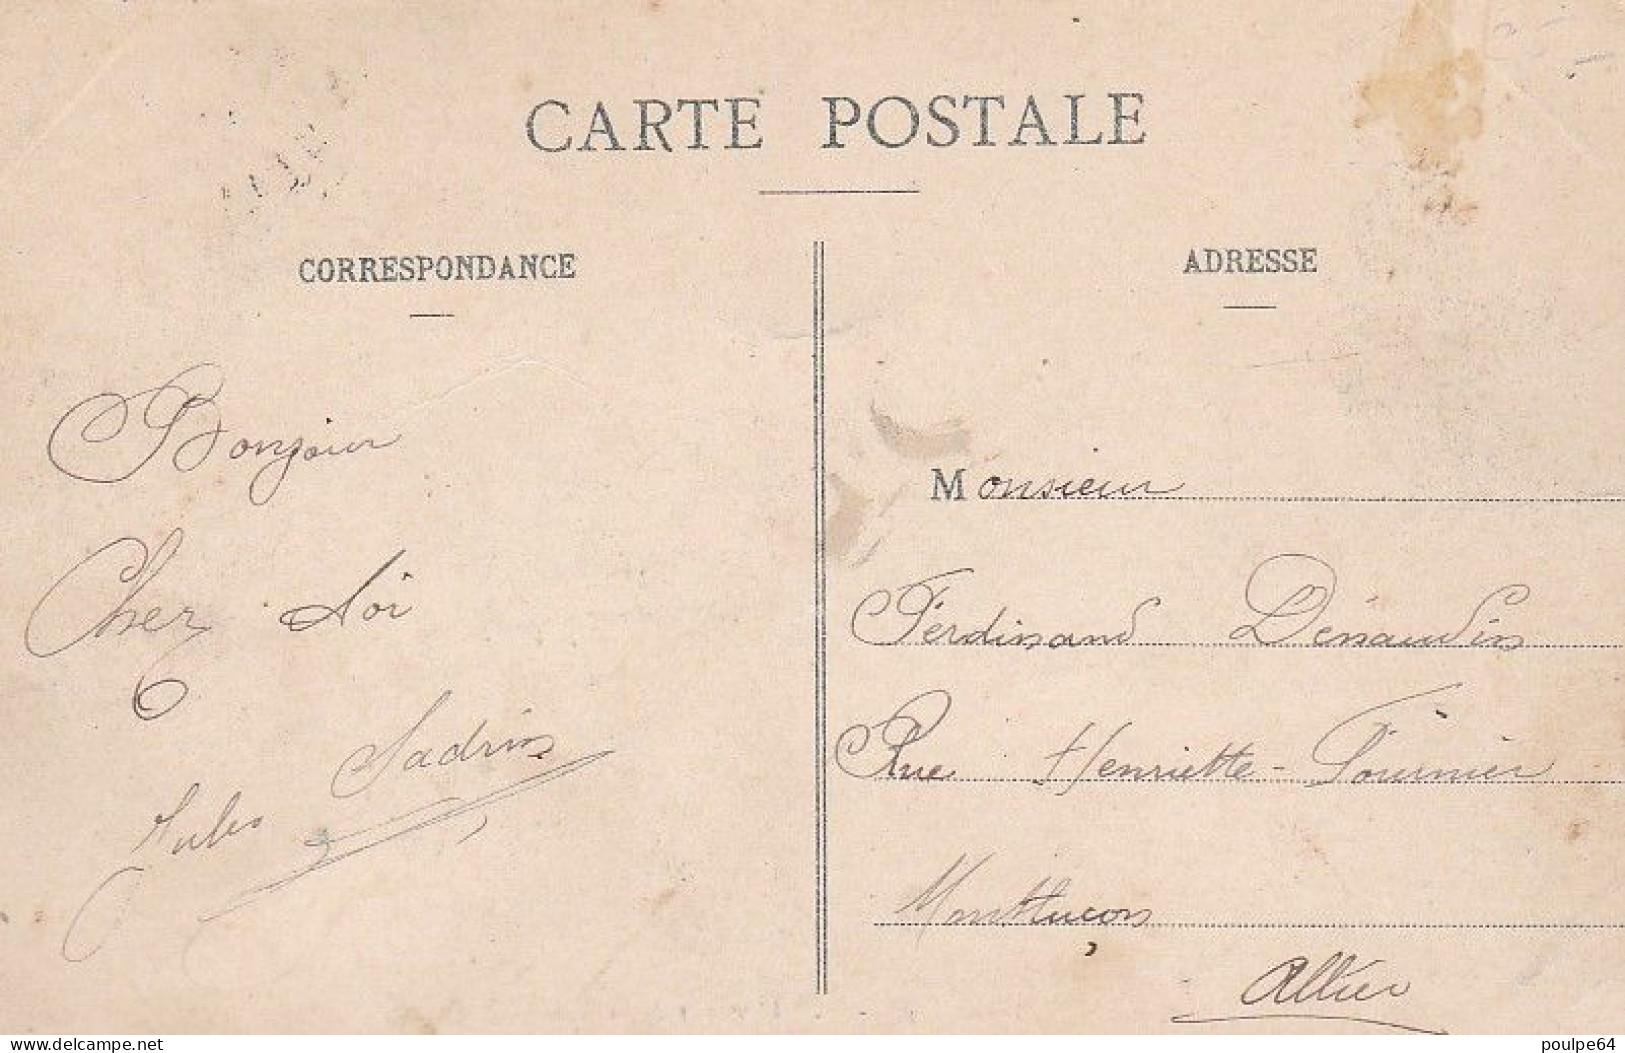 CARTE POSTALE
CORRESPONDANCE
Bonjour
Chez Toi
Jules Sadrin
ADRESSE
Monsieur
Ferdinand Dénaudin
Rue Henriette-Fournier
Montluçon
Allier
www.delcampe.net
poulpe64